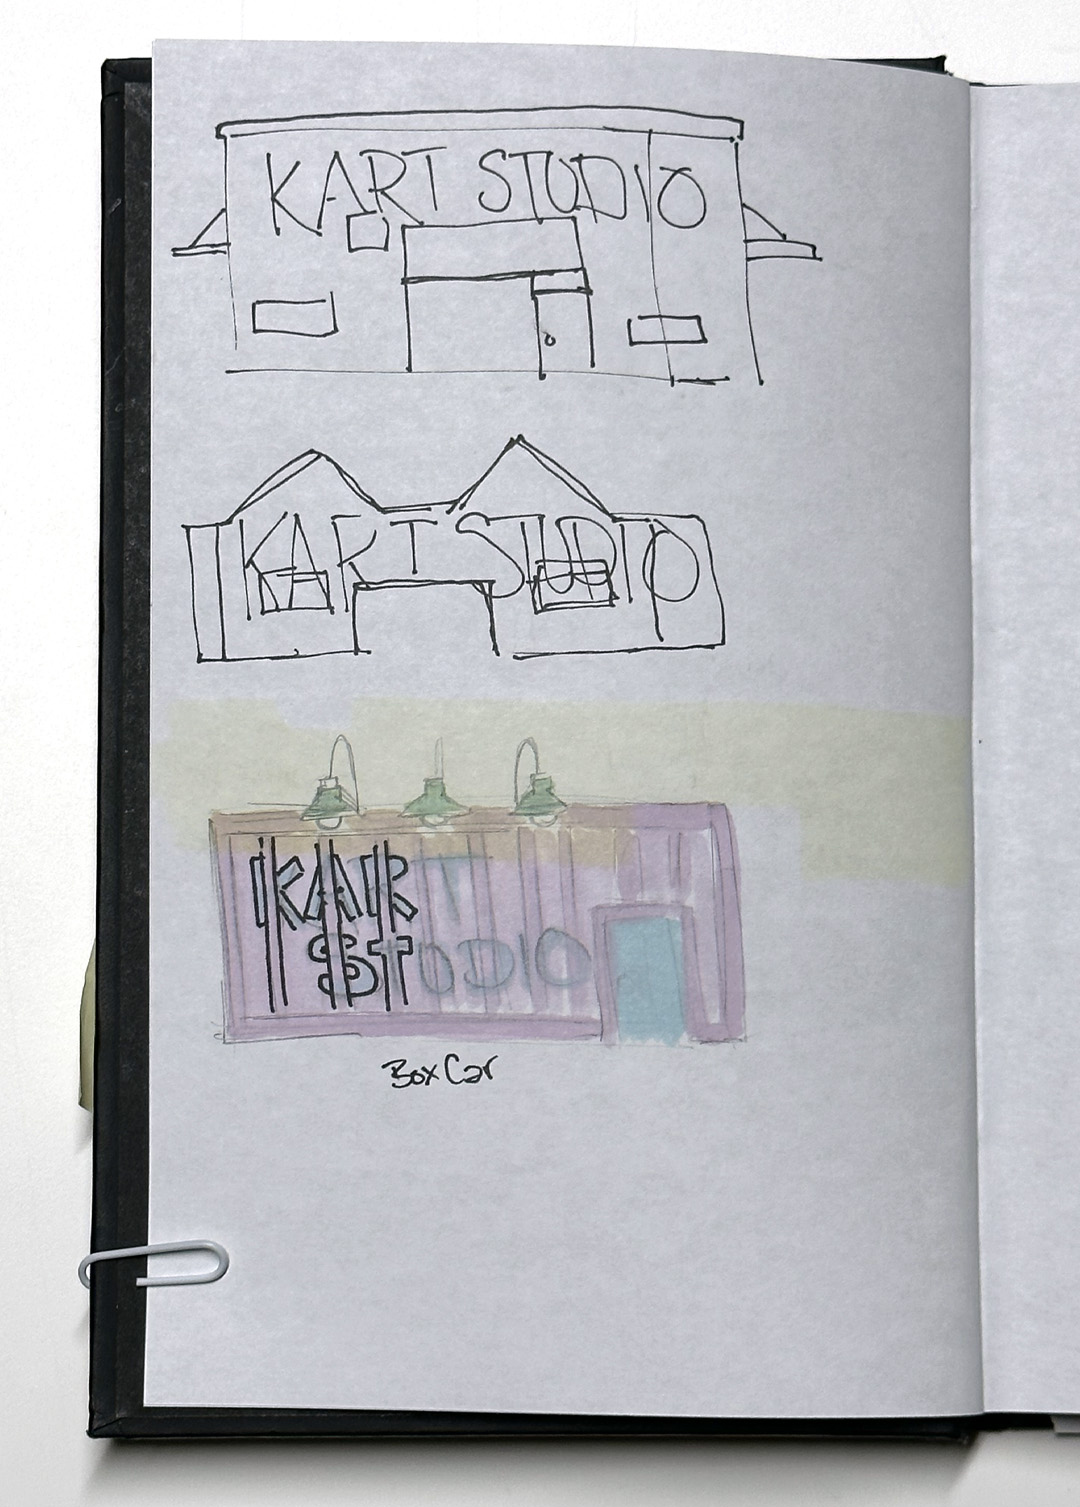 KART STUDIO
KART STUDIO
KART
STUDIO
Box Car